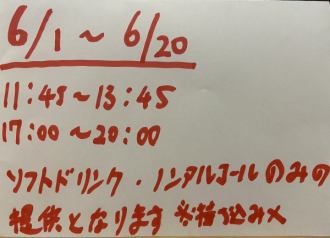 6/1~6/20
11:45~13:45
17:00~20:00
ソフトドリンク・ノンアルコールのみの
提供となります ※持ち込み×